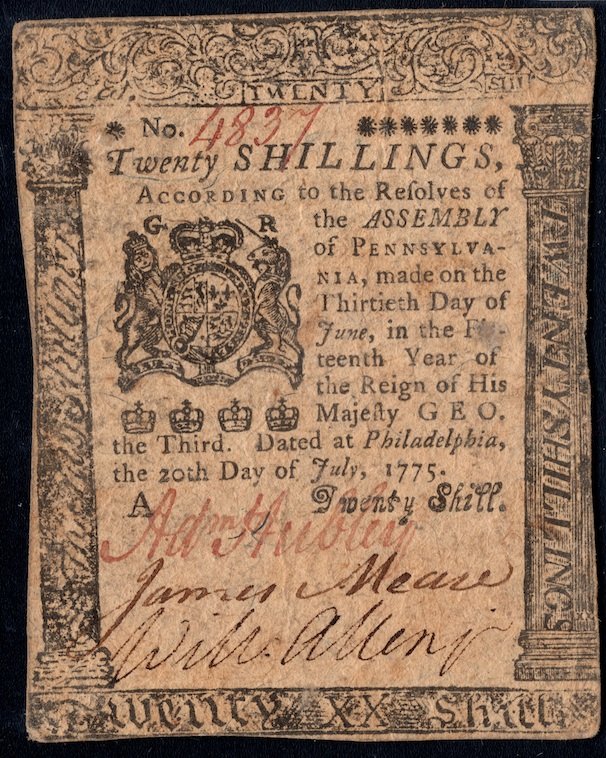 TWENTY SHIL
* No. 4837 *******
Twenty SHILLINGS,
ACCORDING to the Reſolves of
G R
the ASSEMBLY
of PENNSYLVA-
NIA, made on the
Thirtieth Day of
June, in the Fif-
teenth Year of
the Reign of His
Majeſty GEO.
the Third. Dated at Philadelphia,
the 20th Day of July, 1775.
A Twenty Shill.
Adm Hubley
James Mease
Will. Allen jr
Twenty XX Shill.
Twenty Shillings
TWENTY SHILLINGS